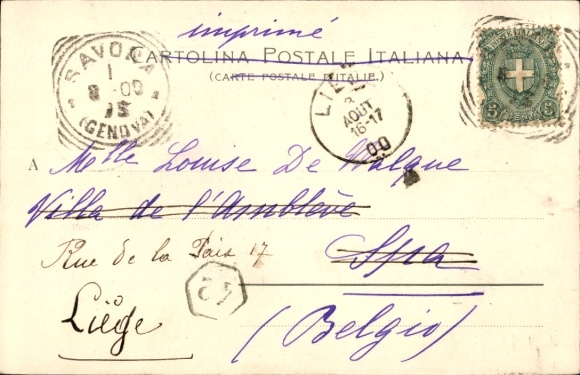 imprimé
CARTOLINA POSTALE ITALIANA
(CARTE POSTALE D'ITALIE.)
SAVONA
1
8 00
(GENOVA)
AOUT
16-17
00
5 5
A Melle Louise De Walque
Villa de l'Amblève
Rue de la Paix 17
Spa
Liège
(Belgio)